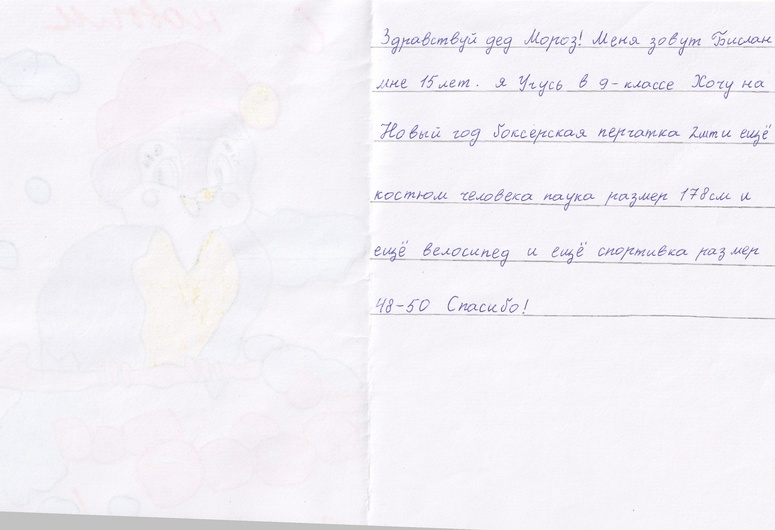 С
новым
Здравствуй дед Мороз! Меня зовут Бислан
мне 15 лет. я Угусь в 9-классе Хочу на
Новый год боксерская перчатка 2шт и ещё
костюм человека паука размер 178см и
ещё велосипед и ещё спортивка размер
48-50 Спасибо!